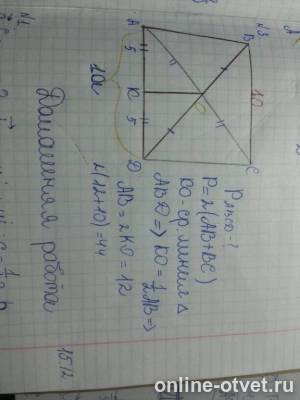 N3
A
B
5
K
O
10
5
D
C
10
P ABCD - ?
P = 2(AB+BC)
KO - ср. линия Δ
ABD => KO = 1/2 AB =>
AB = 2KO = 12
2(12+10) = 44
15.12
Домашняя работа
N1
online-otvet.ru